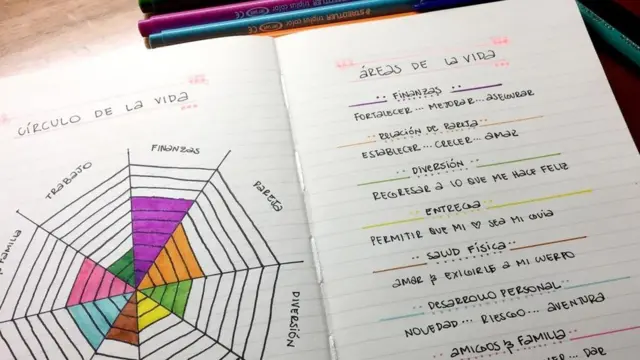 STAEDTLER triplus color
CÍRCULO DE LA VIDA
FINANZAS
TRABAJO
PAREJA
FAMILIA
DIVERSIÓN
ÁREAS DE LA VIDA
FINANZAS
FORTALECER... MEJORAR... ASEGURAR
RELACIÓN DE PAREJA
ESTABLECER... CRECER... AMAR
DIVERSIÓN
REGRESAR A LO QUE ME HACE FELIZ
ENTREGA
PERMITIR QUE MI ♡ SEA MI GUIA
SALUD FÍSICA
AMAR & EXIGIRLE A MI CUERPO
DESARROLLO PERSONAL
NOVEDAD... RIESGO... AVENTURA
AMIGOS & FAMILIA
DAR